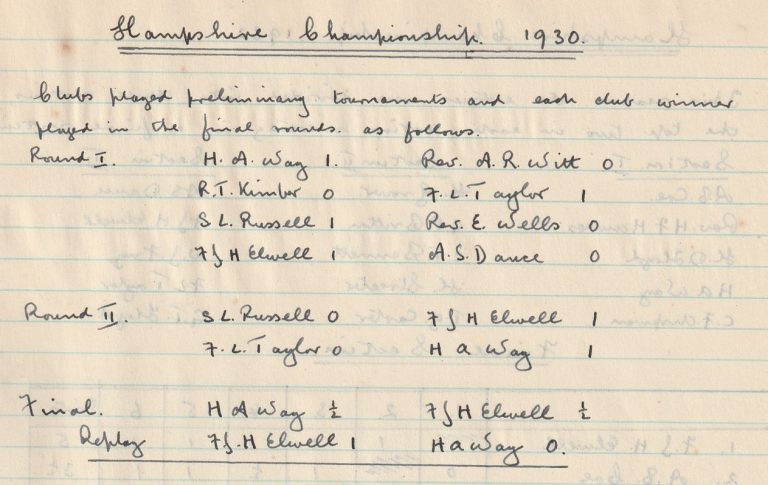 Hampshire Championship. 1930.
Clubs played preliminary tournaments and each club winner
played in the final rounds. as follows.
Round I. H. A. Way 1. Rev. A. R. Witt 0
R. T. Kimber 0 F. L. Taylor 1
S L. Russell 1 Rev. E. Wells 0
F J H Elwell 1 A. S. Dance 0
Round II. S L. Russell 0 F J H Elwell 1
F. L. Taylor 0 H a Way 1
Final. H A Way ½ F J H Elwell ½
Replay F J. H Elwell 1 H a Way 0.